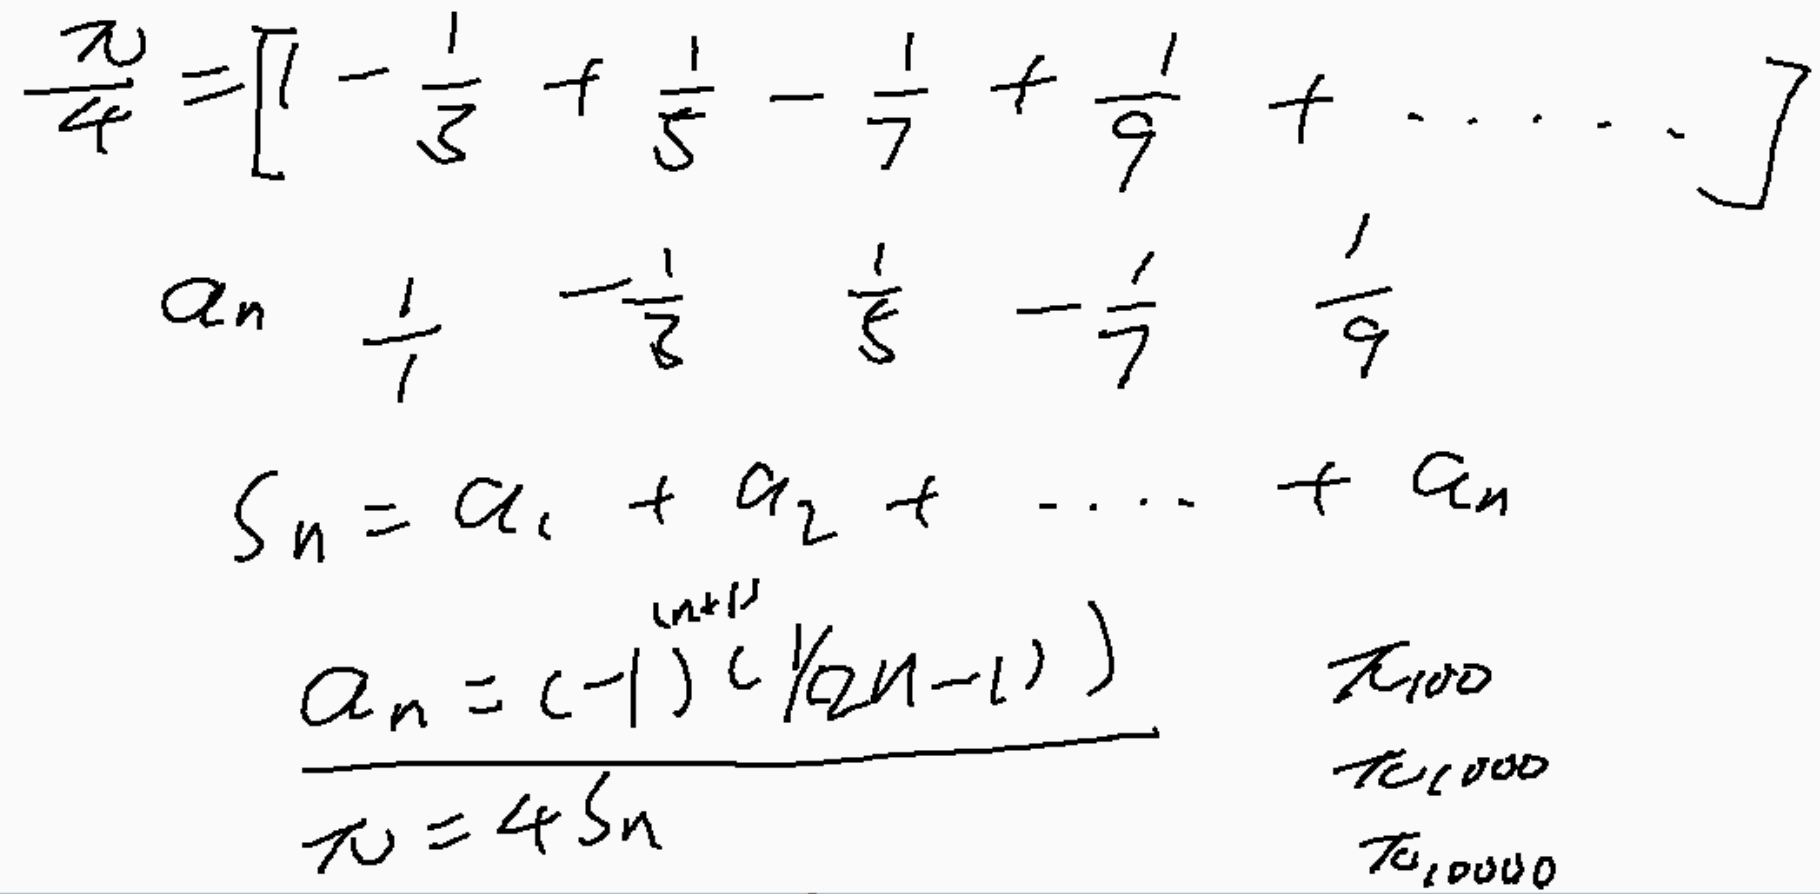 π/4 = [1 - 1/3 + 1/5 - 1/7 + 1/9 + ......]
an 1/1 -1/3 1/5 -1/7 1/9
Sn = a1 + a2 + .... + an
an = (-1)^(n+1) (1/(2n-1))
π100
π1000
π = 4Sn
π10000